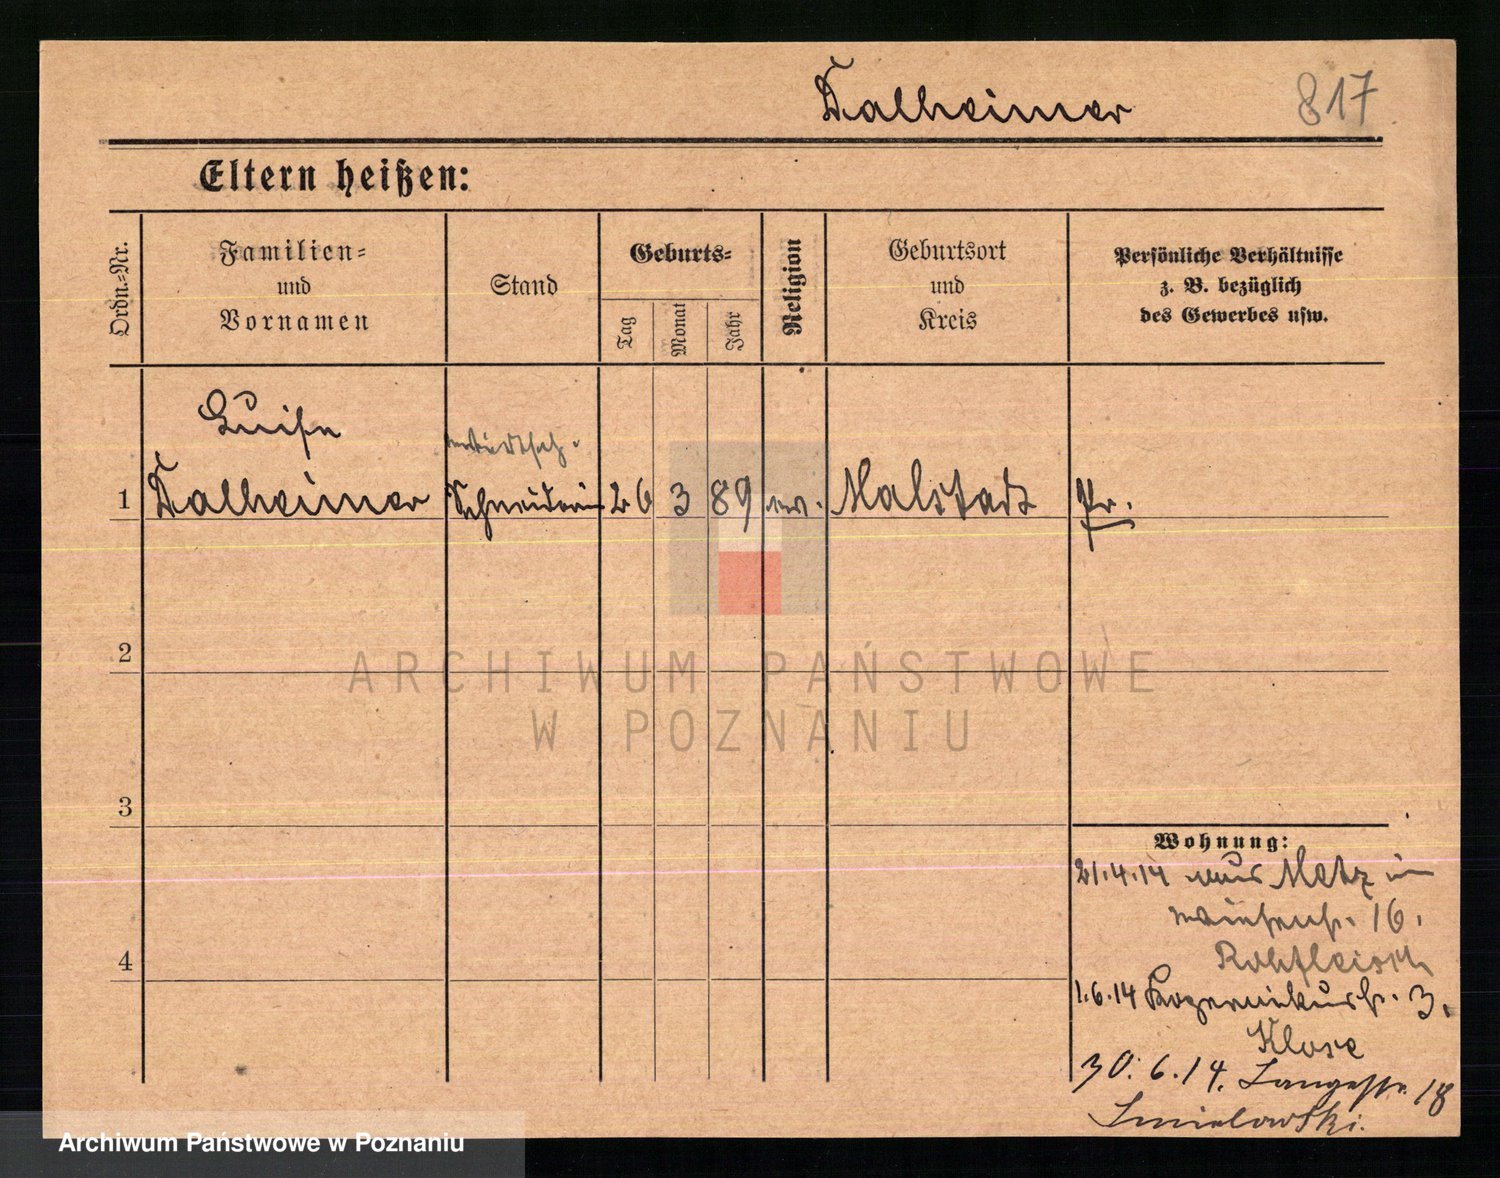 Dalheimer 817
Eltern heißen:
Ordn.-Nr.
Familien-
und
Vornamen
Stand
Geburts-
Tag
Monat
Jahr
Religion
Geburtsort
und
Kreis
Persönliche Verhältnisse
z. B. bezüglich
des Gewerbes usw.
Luise
1 Dalheimer Schneiderin 26 3 89 ev. Malstadt Pr.
2
ARCHIWUM PAŃSTWOWE
W POZNANIU
3
Wohnung:
21.4.14 aus Metz in
16.
Rohfleisch
4
1.6.14 Kopernikusstr. 3.
Klose
30.6.14. Langestr. 18
Smielowski.
Archiwum Państwowe w Poznaniu